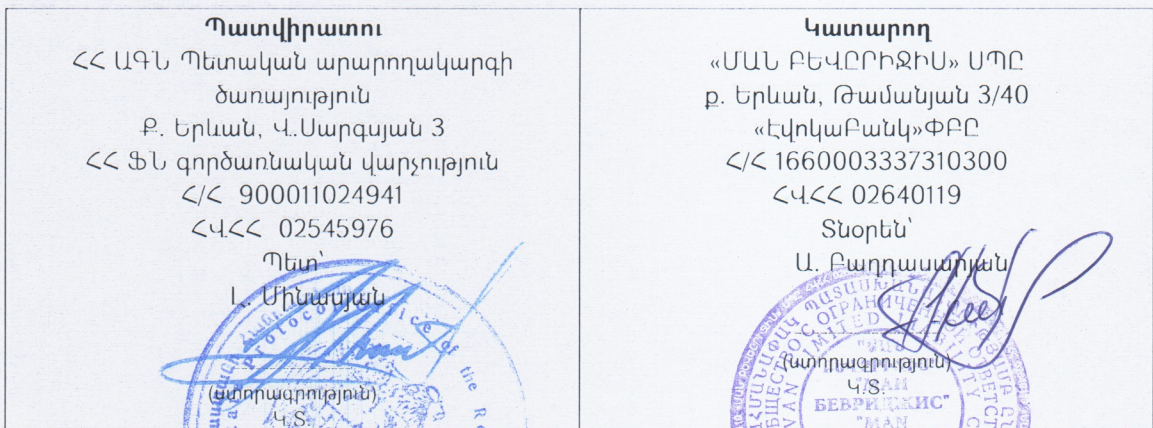 Պատվիրատու
ՀՀ ԱԳՆ Պետական արարողակարգի
ծառայություն
Ք. Երևան, Վ.Սարգսյան 3
ՀՀ ՖՆ գործառնական վարչություն
Հ/Հ 900011024941
ՀՎՀՀ 02545976
Պետ՝
Լ. Մինասյան
(ստորագրություն)
Կ.Տ.
Protocol Office of the
Կատարող
«ՄԱՆ ԲԵՎԸՐԻՋԻՍ» ՍՊԸ
ք. Երևան, Թամանյան 3/40
«ԷվոկաԲանկ»ՓԲԸ
Հ/Հ 1660003337310300
ՀՎՀՀ 02640119
Տնօրեն՝
Ա. Բաղդասարյան
(ստորագրություն)
Կ.Տ.
LIMITED
"МАН
БЕВРИДЖИС"
"MAN